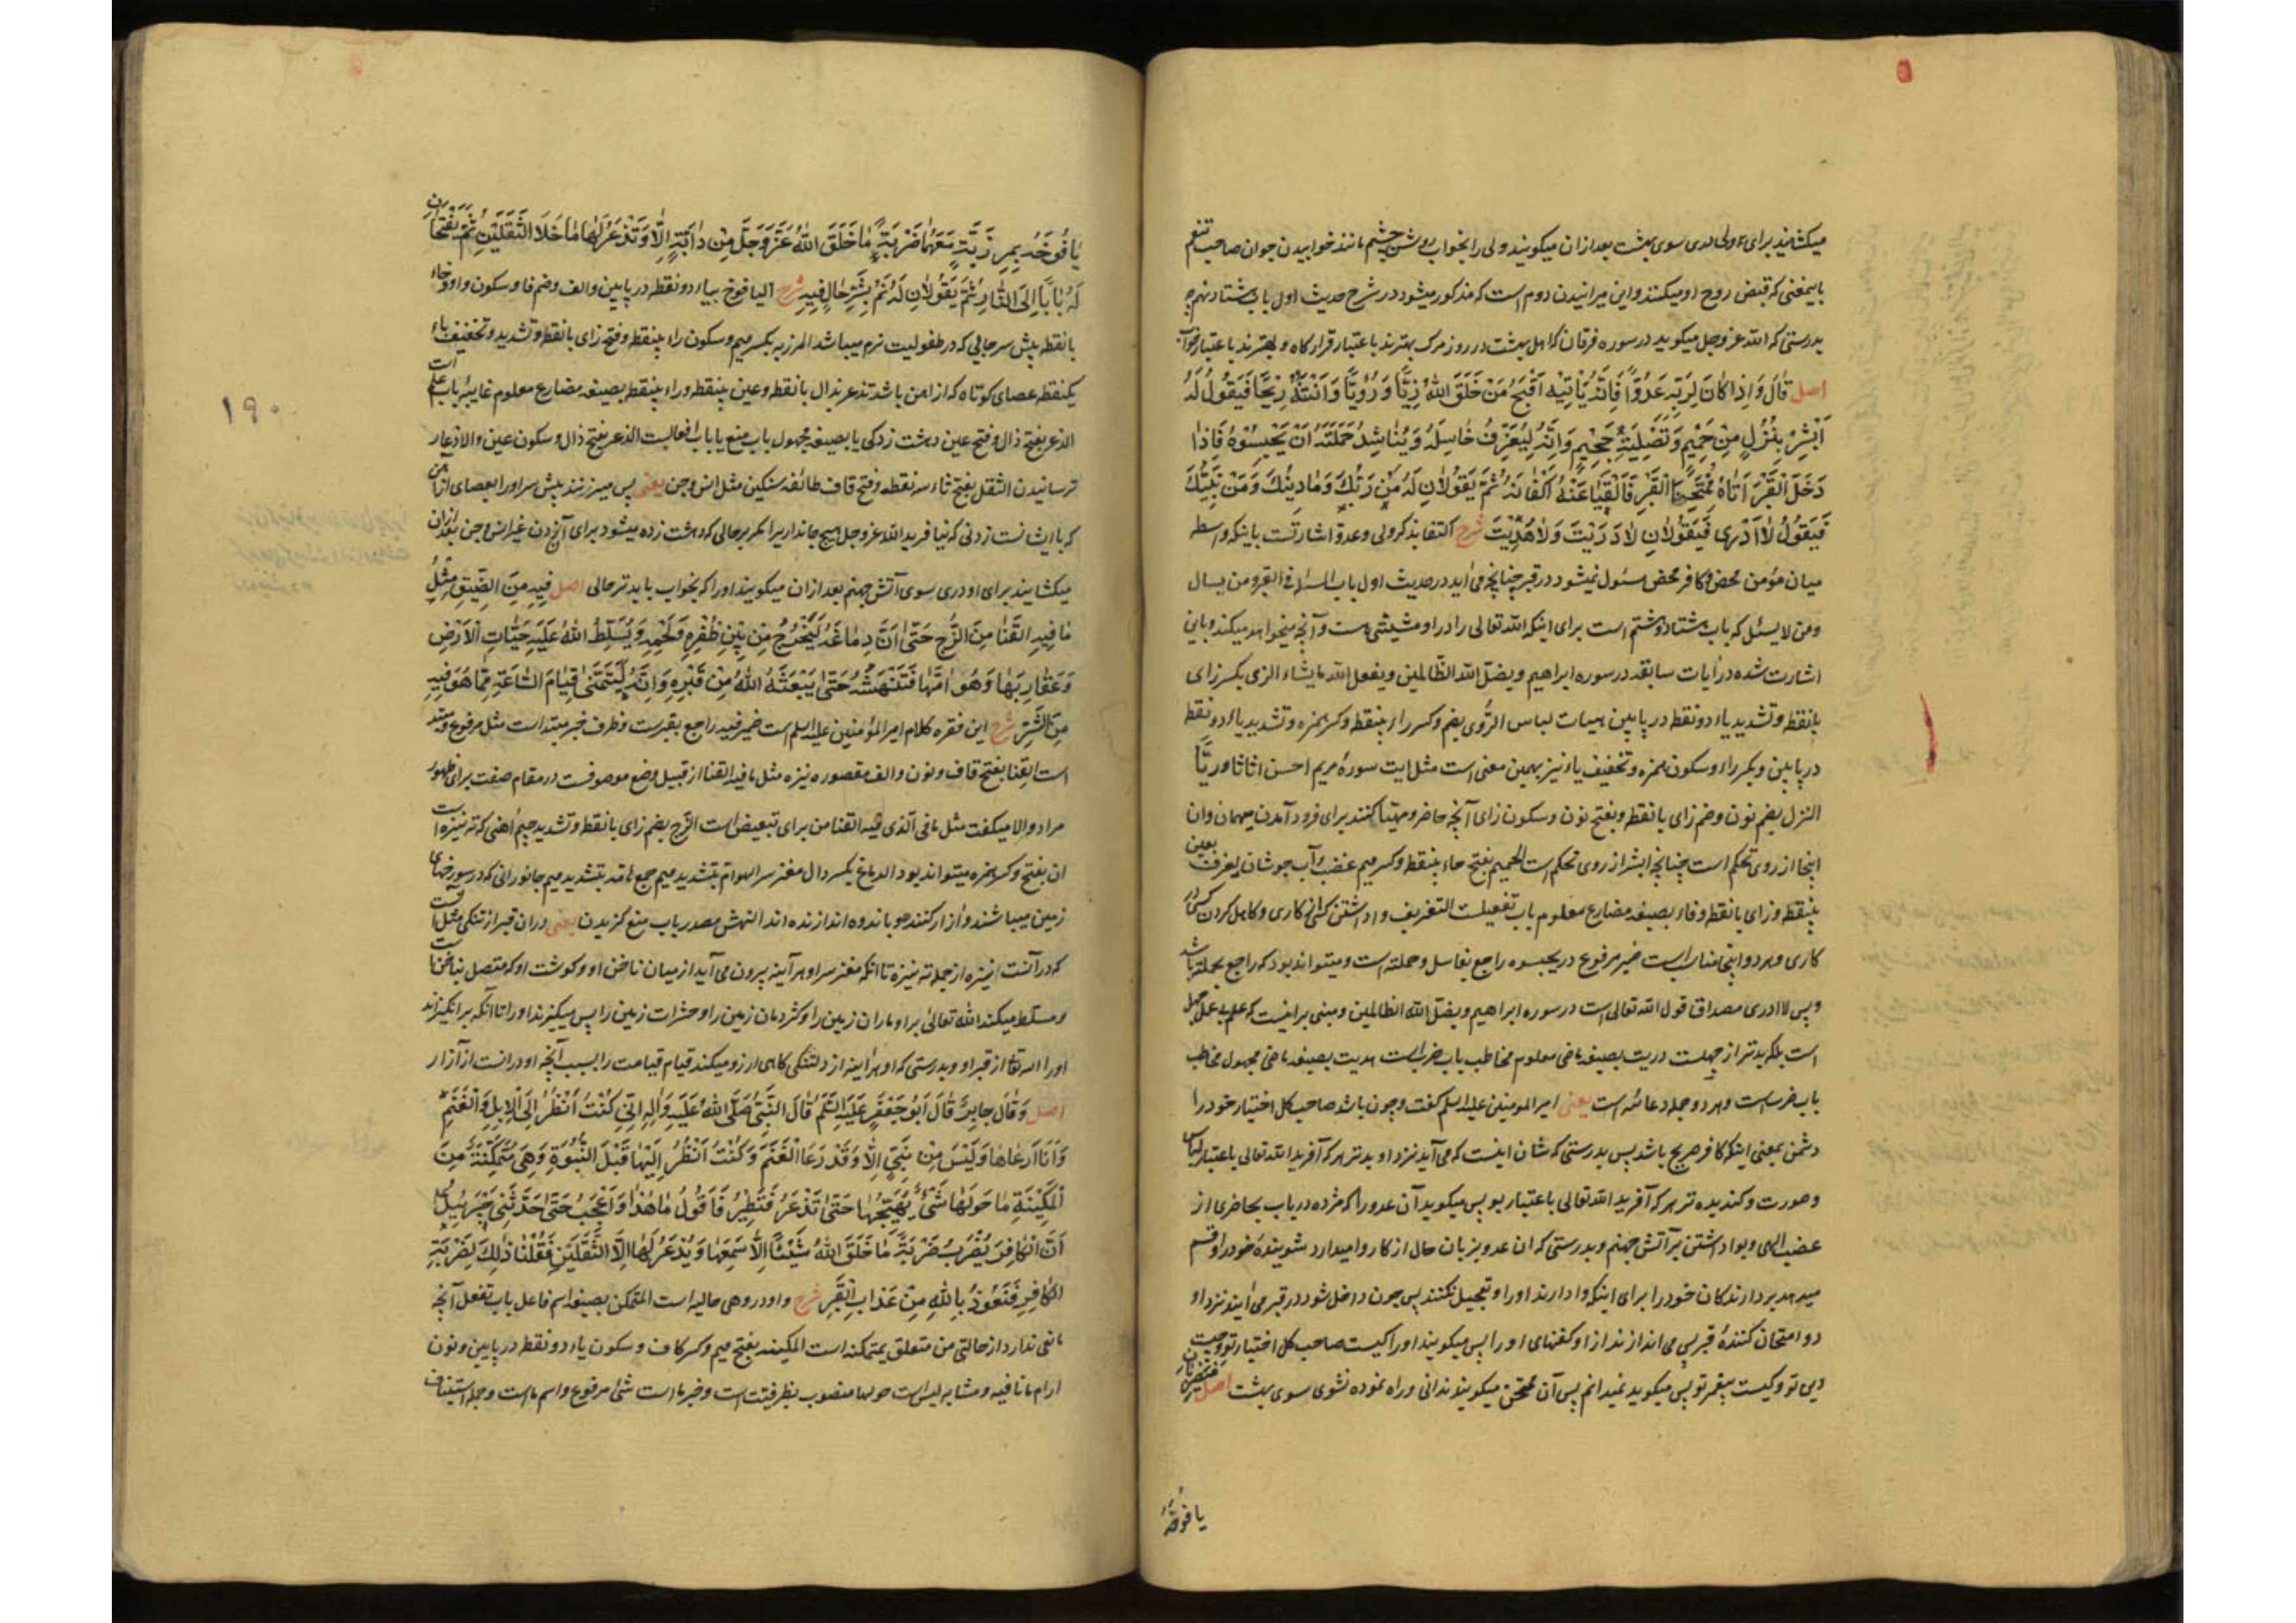 میکشایند برای ولی دری سوی بهشت بعد از ان میکویند ولی را بخواب روشن چشم مانند خوابیدن جوان صاحب تنعم
باینمعنی که قبض روح او میکنند و این میرانیدن دوم است که مذکور میشود در شرح حدیث اول باب هشتاد نهم چه
بدرستی که الله عز وجل میکوید در سوره فرقان که اهل بهشت در روز مرک بهترند باعتبار قرارکاه و بهترند باعتبار خوابکاه
اصل قَالَ وَاِذَا كَانَ لِرَبِّهِ عَدُوًّا فَاِنَّهُ يَأْتِيهِ اَقْبَحُ مَنْ خَلَقَ اللهُ زِيًّا وَ رُؤْيًا وَ اَنْتَنُهُ رِيْحًا فَيَقُولُ لَهُ
اَبْشِرْ بِنُزُلٍ مِنْ حَمِيْمٍ وَتَصْلِيَةِ جَحِيْمٍ وَاِنَّهُ لَيَعْرِفُ غَاسِلَهُ وَيُنَاشِدُ حَمَلَتَهُ اَنْ يَحْبِسُوهُ فَاِذَا
دَخَلَ الْقَبْرَ اَتَاهُ مُمْتَحِنَا الْقَبْرِ فَاَلْقَيَا عَنْهُ اَكْفَانَهُ ثُمَّ يَقُولَانِ لَهُ مَنْ رَبُّكَ وَمَا دِينُكَ وَمَنْ نَبِيُّكَ
فَيَقُولُ لَا اَدْرِي فَيَقُولَانِ لَا دَرَيْتَ وَلَا هَدَيْتَ شرح اکتفا بذکر ولی و عدو اشارتست باینکه واسطه
میان مؤمن محض و کافر محض مسئول نمیشود در قبر چنانچه می آید در حدیث اول باب المسئلة فی القبر و من یسال
و من لا یسئل که باب هشتاد و هشتم است برای اینکه الله تعالی را در او مشیتی هست و آنچه میخواهد میکند و باین
اشارت شده در آیات سابقه در سوره ابراهیم ویضل الله الظالمین ویفعل الله ما یشاء الزی بکسر زای
با نقطه و تشدید یاء دو نقطه در پایین هیات لباس الرؤی بضم و کسر راء بینقطه و کسر همزه و تشدید یاء دو نقطه
در پایین و بکسر راء و سکون همزه و تخفیف یاء نیز بهمین معنی است مثل ایت سورهٔ مریم احسن اثاثا و ریّا
النزل بضم نون و ضم زای با نقطه و بفتح نون و سکون زای آنچه حاضر و مهیا کنند برای فرود آمدن میهمان و ان
اینجا از روی تحکم است چنانچه ابشر از روی تحکم است الحمیم بفتح حاء بینقطه و کسر میم غضب و آب جوشان یعرف بعین
بینقطه و زای با نقطه و فاء بصیغه مضارع معلوم باب تفعیلست التعزیف واداشتن کسی کاری و کاهل کردن کسی در
کاری و هر دو اینجا مناسب است ضمیر مرفوع در یحبسوه راجع بغاسل و حملته است و میتواند بود که راجع بحملته باشد
و بس لا ادری مصداق قول الله تعالی است در سوره ابراهیم ویضل الله الظالمین و مبنی بر اینست که علم بی عمل جهل
است بلکه بدتر از جهلست دریت بصیغه ماضی معلوم مخاطب باب ضرب است هدیت بصیغه ماضی مجهول مخاطب
باب ضرب است و هر دو جمله دعائیه است یعنی امیر المومنین علیه السلم کفت و چون باشد صاحب کل اختیار خود را
دشمن بمعنی اینکه کافر صریح باشد پس بدرستی که شان اینست که می آید نزد او بدتر هر که آفرید الله تعالی باعتبار لباس
و صورت و کندیده تر هر که آفرید الله تعالی باعتبار بو پس میکوید آن عدو را که مژده دریاب بحاضری از
غضب الهی و بواداشتن بر آتش جهنم و بدرستی که ان عدو بزبان حال از کار وامیدارد شویندهٔ خود را و قسم
میدهد بردارندکان خود را برای اینکه وادارند او را و تعجیل نکنند پس چون داخل شود در قبر می آیند نزد او
دو امتحان کنندهٔ قبر پس می اندازند از او کفنهای او را پس میکویند او را کیست صاحب کل اختیار تو و چیست
دین تو و کیست پیغمبر تو پس میکوید نمیدانم پس آن ممتحن میکویند ندانی و راه نموده نشوی سوی بهشت اصل فیضربان
یافوخه
يَافُوخَهُ بِمِرْزَبَّةٍ مَعَهُمَا ضَرْبَةً مَا خَلَقَ اللهُ عَزَّ وَجَلَّ مِنْ دَابَّةٍ اِلَّا وَتَذْعَرُ لَهَا مَا خَلَا الثَّقَلَيْنِ ثُمَّ يَفْتَحَانِ
لَهُ بَابًا اِلَى النَّارِ ثُمَّ يَقُولَانِ لَهُ نَمْ بِشَرِّ حَالٍ فِيهِ شرح الیافوخ بیاء دو نقطه در پایین و الف و ضم فا و سکون واو و خاء
با نقطه پیش سر جایی که در طفولیت نرم میباشد المرزبه بکسر میم و سکون راء بینقطه و فتح زای با نقطه و تشدید و تخفیف باء
یکنقطه عصای کوتاه که از اهن باشد تذعر بذال با نقطه و عین بینقطه و راء بینقطه بصیغه مضارع معلوم غایبه باب علم است
الذعر بفتح ذال و فتح عین دهشت زدکی یا بصیغه مجهول باب منع یا باب افعالست الذعر بفتح ذال و سکون عین والاذعار
ترسانیدن الثقل بفتح ثاء سه نقطه و فتح قاف طائفه سنکین مثل انس و جن یعنی پس میزنند پیش سر او را بعصای از آهن
که با ایشانست زدنی که نیافرید الله عز وجل هیچ جانداری را مکر بر حالی که دهشت زده میشود برای آنزدن غیر انس و جن بعد از ان
میکشایند برای او دری سوی آتش جهنم بعد از ان میکویند او را که بخواب باید تر حالی اصل فِيهِ مِنَ الضِّيْقِ مِثْلُ
مَا فِيهِ الْقَنَا مِنَ الزُّجِّ حَتَّى اَنَّ دِمَاغَهُ لَيَخْرُجُ مِنْ بَيْنِ ظُفْرِهِ وَلَحْمِهِ وَيُسَلِّطُ اللهُ عَلَيْهِ حَيَّاتِ الْاَرْضِ
وَعَقَارِبَهَا وَهَوَامَّهَا فَتَنْهَشُهُ حَتَّى يَبْعَثَهُ اللهُ مِنْ قَبْرِهِ وَاِنَّهُ لَيَتَمَنَّى قِيَامَ السَّاعَةِ مِمَّا هُوَ فِيهِ
مِنَ الشَّرِّ شرح این فقره کلام امیر المؤمنین علیه السلم است ضمیر فیه راجع بقبرست و ظرف خبر مبتداست مثل مرفوع و مبتدا
است القنا بفتح قاف و نون و الف مقصوره نیزه مثل ما فیه القنا از قبیل وضع موصوفست در مقام صفت برای ظهور
مراد والا میکفت مثل ما فی الذی فیه القنا من برای تبعیض است الزج بضم زای با نقطه و تشدید جیم آهنی که ته نیزه است
ان بفتح و کسر همزه میتواند بود الدماغ بکسر دال مغز سر الهوام بتشدید میم جمع هامه بتشدید میم جانورانی که در سوراخهای
زمین میباشند و آزار کنند النهش مصدر باب منع کزیدن یعنی در ان قبر از تنکی مثل آنست
که در آنست نیزه از جمله ته نیزه تا انکه مغز سر او هر آینه بیرون می آید از میان ناخن او و کوشت او که متصل بناخن است
و مسلط میکند الله تعالی بر او ماران زمین را و کژدمان زمین را و حشرات زمین را پس میکزند او را تا آنکه بر انکیزاند
او را الله تعالی از قبر او و بدرستی که او هر آینه از دلتنکی کاهی آرزو میکند قیام قیامت را بسبب آنچه او در انست از آزار
اصل وَقَالَ جَابِرٌ قَالَ اَبُو جَعْفَرٍ عَلَيْهِ السَّلَمُ قَالَ النَّبِيُّ صَلَّى اللهُ عَلَيْهِ وَاٰلِهِ اِنِّي كُنْتُ اَنْظُرُ اِلَى الْاِبِلِ وَالْغَنَمِ
وَاَنَا اَرْعَاهَا وَلَيْسَ مِنْ نَبِيٍّ اِلَّا وَقَدْ رَعَا الْغَنَمَ وَكُنْتُ اَنْظُرُ اِلَيْهَا قَبْلَ النُّبُوَّةِ وَهِيَ مُتَمَكِّنَةٌ مِنَ
الْمَكِيْنَةِ مَا حَوْلَهَا شَيْءٌ يُهَيِّجُهَا حَتَّى تَذْعَرَ فَتَطِيْرَ فَاَقُولُ مَا هٰذَا وَاَعْجَبُ حَتَّى حَدَّثَنِي جَبْرَئِيلُ
اَنَّ الْكَافِرَ يُضْرَبُ ضَرْبَةً مَا خَلَقَ اللهُ شَيْئًا اِلَّا سَمِعَهَا وَيُذْعَرُ لَهَا اِلَّا الثَّقَلَيْنِ فَقُلْنَا ذٰلِكَ لِضَرْبَةِ
الْكَافِرِ فَنَعُوذُ بِاللهِ مِنْ عَذَابِ الْقَبْرِ شرح واو در وهی حالیه است المتمکن بصیغه اسم فاعل باب تفعل آنچه
مانعی ندارد از حالتی من متعلق بمتمکنه است المکینه بفتح میم و کسر کاف و سکون یاء دو نقطه در پایین و نون
ارام ما نافیه و مشابه لیس است حولها منصوب بظرفیتست و خبر ما است شیٔ مرفوع و اسم ما است و جمله استیناف
۱۹۰